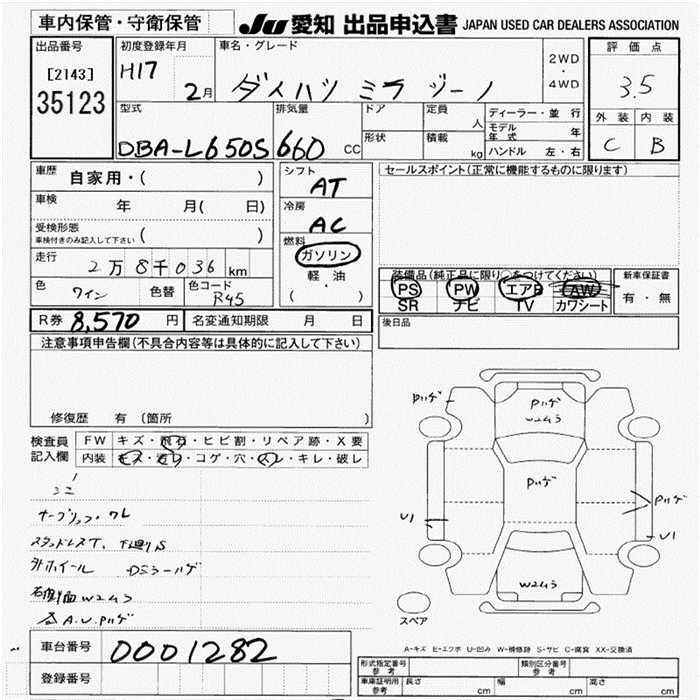 車内保管・守衛保管
JU 愛知 出品申込書 JAPAN USED CAR DEALERS ASSOCIATION
出品番号
[2143]
35123
初度登録年月
H17 2月
車名・グレード
ダイハツ ミラ ジーノ
2WD
・
4WD
評価点
3.5
外装 内装
C B
型式
DBA-L650S
排気量
660 CC
ドア
形状
定員
人
積載
kg
ディーラー・並行
モデル年式 年
ハンドル 左・右
車歴
自家用・( )
車検 年 月( 日)
受検形態
車検付きのみ記入して下さい ( )
走行
2万8千036 km
色 ワイン 色替 色コード R45
シフト
AT
冷房
AC
燃料
ガソリン
軽・油
( ・ )
セールスポイント(正常に機能するものに限ります)
装備品(純正品に限り○をつけてください)
PS PW エアB AW
SR ナビ TV カワシート
新車保証書
有・無
R券 8,570 円 名変通知期限 月 日
後日品
注意事項申告欄(不具合内容等は具体的に記入して下さい)
修復歴 有 (箇所 )
検査員記入欄
FW キズ・飛石・ヒビ割・リペア跡・X要
内装 キズ・汚レ・コゲ・穴・スレ・キレ・破レ
スタッドレスT、下廻りS
外ホイール Dミラーハゲ
右側面W2ムラ
Pハゲ
Pハゲ
W2ムラ
Pハゲ
Pハゲ
U1
U1
W2ムラ
スペア
A-キズ E-エクボ U-凹み W-補修跡 S-サビ C-腐食 XX-交換済
車台番号 0001282
登録番号
形式指定番号 参考
類別区分番号 参考
車庫証明用 参考 長さ cm 幅 cm 高さ cm